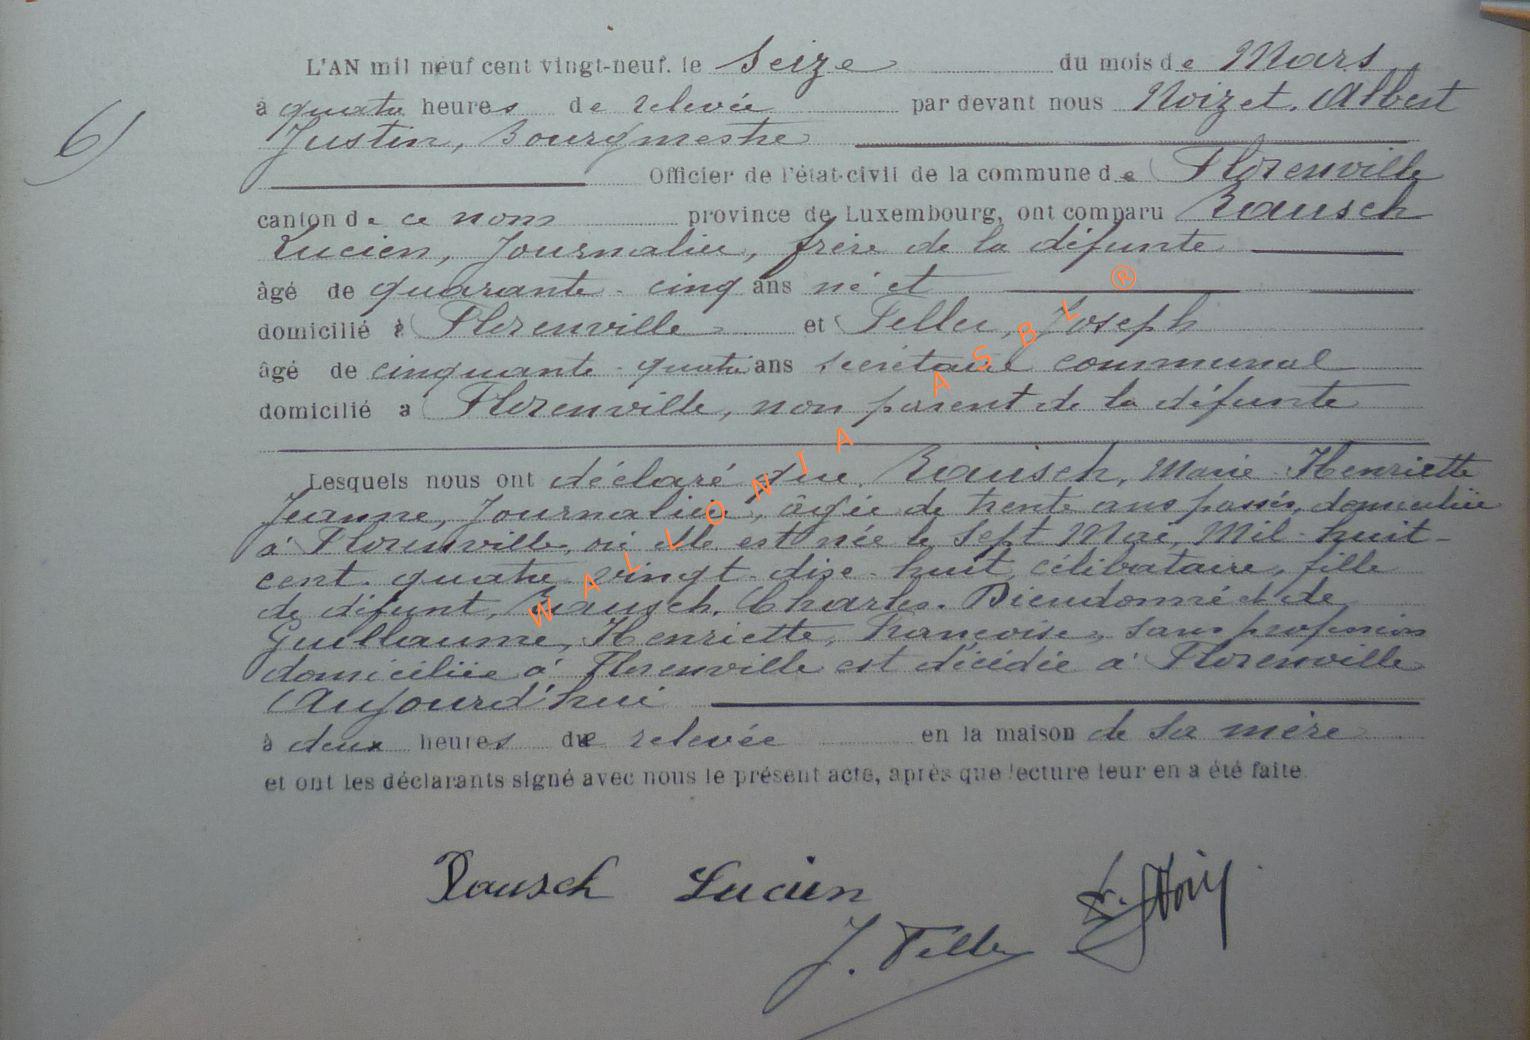 L'AN mil neuf cent vingt-neuf. le Seize du mois de Mars
6)
à quatre heures de relevée par devant nous Noizet. Albert
Justin, Bourgmestre
Officier de l'état-civil de la commune de Florenville
canton de ce nom province de Luxembourg, ont comparu Rausch
Lucien, Journalier, frère de la défunte
âgé de quarante-cinq ans né et
domicilié à Florenville et Feller, Joseph
âgé de cinquante-quatre ans secrétaire communal
domicilié a Florenville, non parent de la défunte
Lesquels nous ont déclaré que Rausch, Marie-Henriette
Jeanne, Journalière, âgée de trente ans passés, domiciliée
à Florenville, où elle est née le Sept Mai, Mil-huit-
cent-quatre-vingt-dix-huit, célibataire, fille
de défunt, Rausch, Charles-Dieudonné et de
Guillaume, Henriette, Françoise, sans profession
domiciliée à Florenville est décédée à Florenville
Aujourd'hui
à deux heures de relevée en la maison de sa mère
et ont les déclarants signé avec nous le présent acte, après que lecture leur en a été faite.
Rausch Lucien
J. Feller
WALLONIA ASBL ®